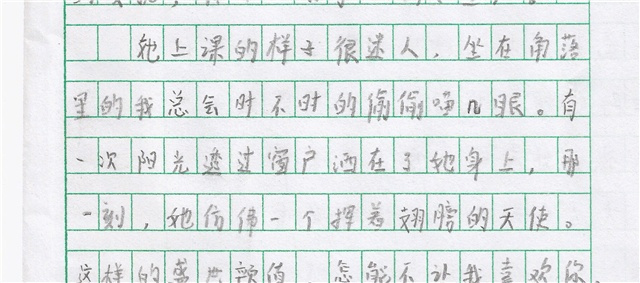 她上课的样子很迷人，坐在角落
里的我总会时不时的偷偷喵n眼。有
一次阳光透过窗户洒在了她身上，那
一刻，她仿佛一个挥着翅膀的天使。
这样的盛世颜值，怎能不让我喜欢你，